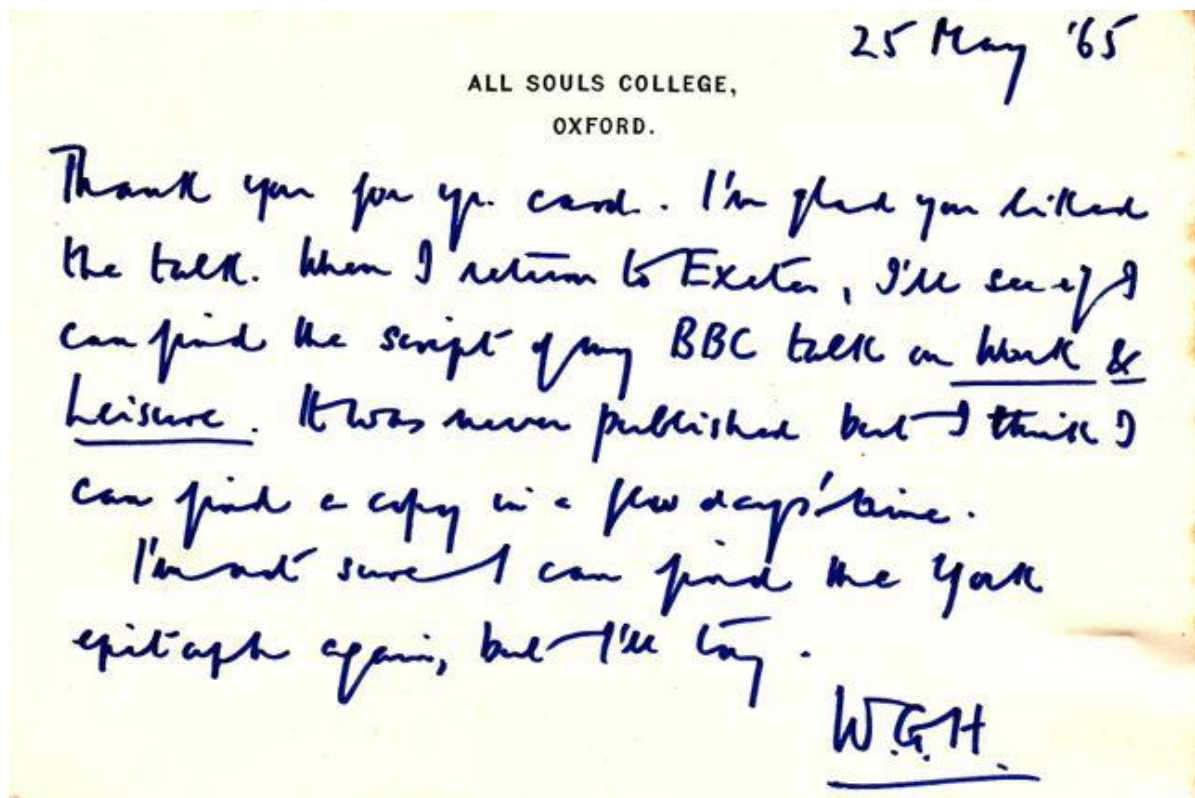 25 May '65
ALL SOULS COLLEGE,
OXFORD.
Thank you for yr. card. I'm glad you liked
the talk. When I return to Exeter, I'll see if I
can find the script of my BBC talk on Work &
Leisure. It was never published but I think I
can find a copy in a few days' time.
I'm not sure I can find the York
epitaph again, but I'll try.
W.G.H.